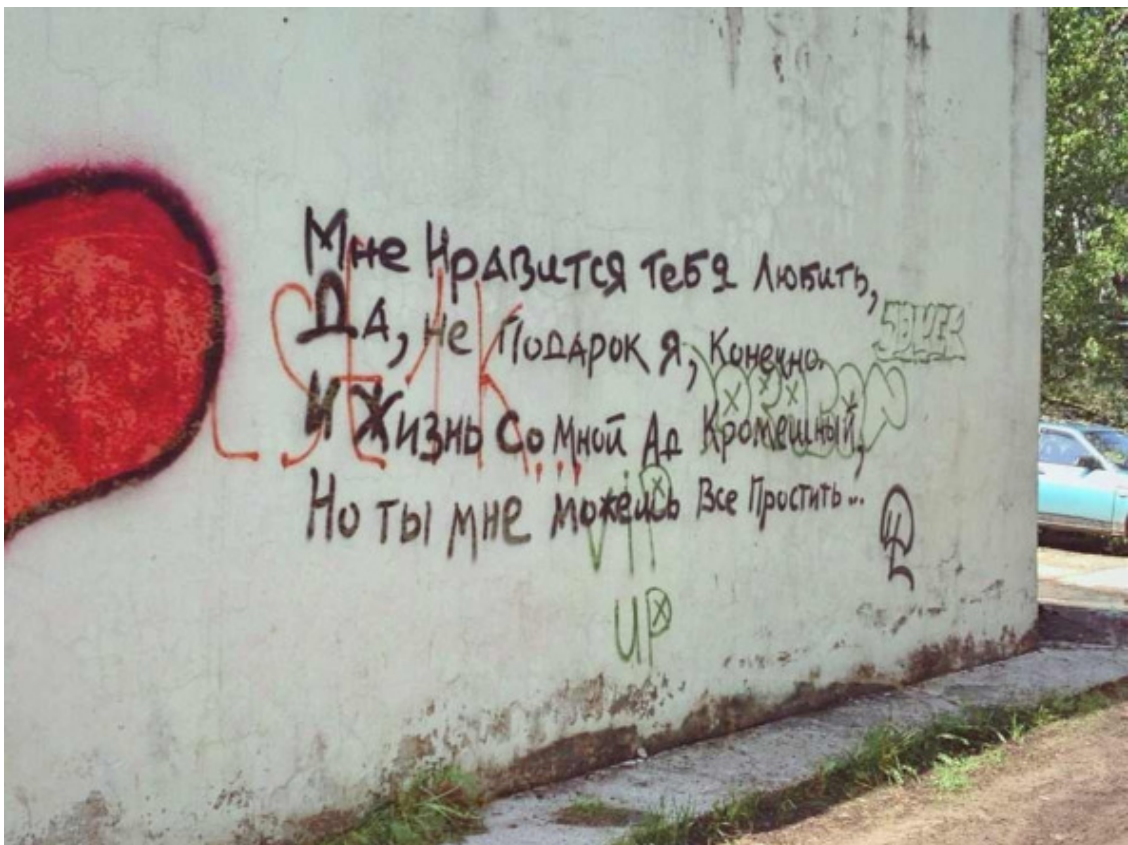 Мне Нравится тебя Любить,
Да, не Подарок я, Конечно.
И Жизнь Со Мной Ад Кромешный,
Но ты мне можешь Все Простить...
VIP
UP